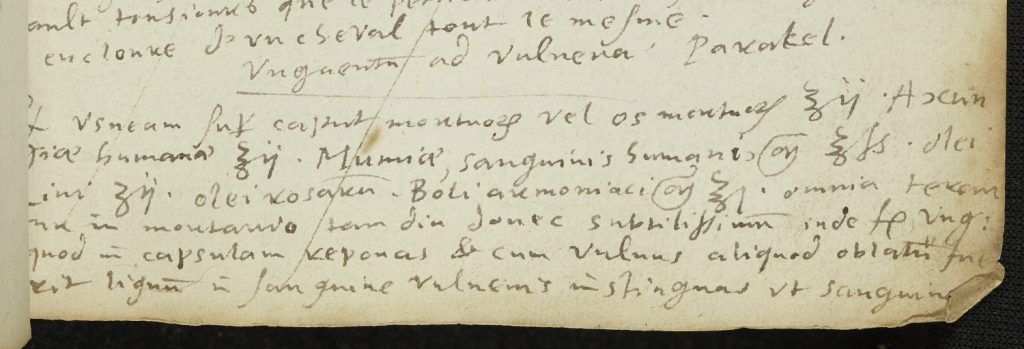 ault tonsiones que le
encloure d'un cheval tout le mesme.
Unguentū ad vulnera. Parakel.
℞ Usneam sup caput mortuorꝝ vel os mortuorꝝ ℥ij. Axun
giæ humanæ ℥ij. Mumiæ, sanguinis humani, an ℥ſs. olei
Lini ℥ij. olei rosarū. Boli armoniaci an ℥j. omnia teran
tur in mortario tam diu donec subtilissimum inde fit ung:
quod in capsulam reponas & cum vulnus aliquod oblatū fue
rit lignū in sanguine vulneris instinguas ut sanguine